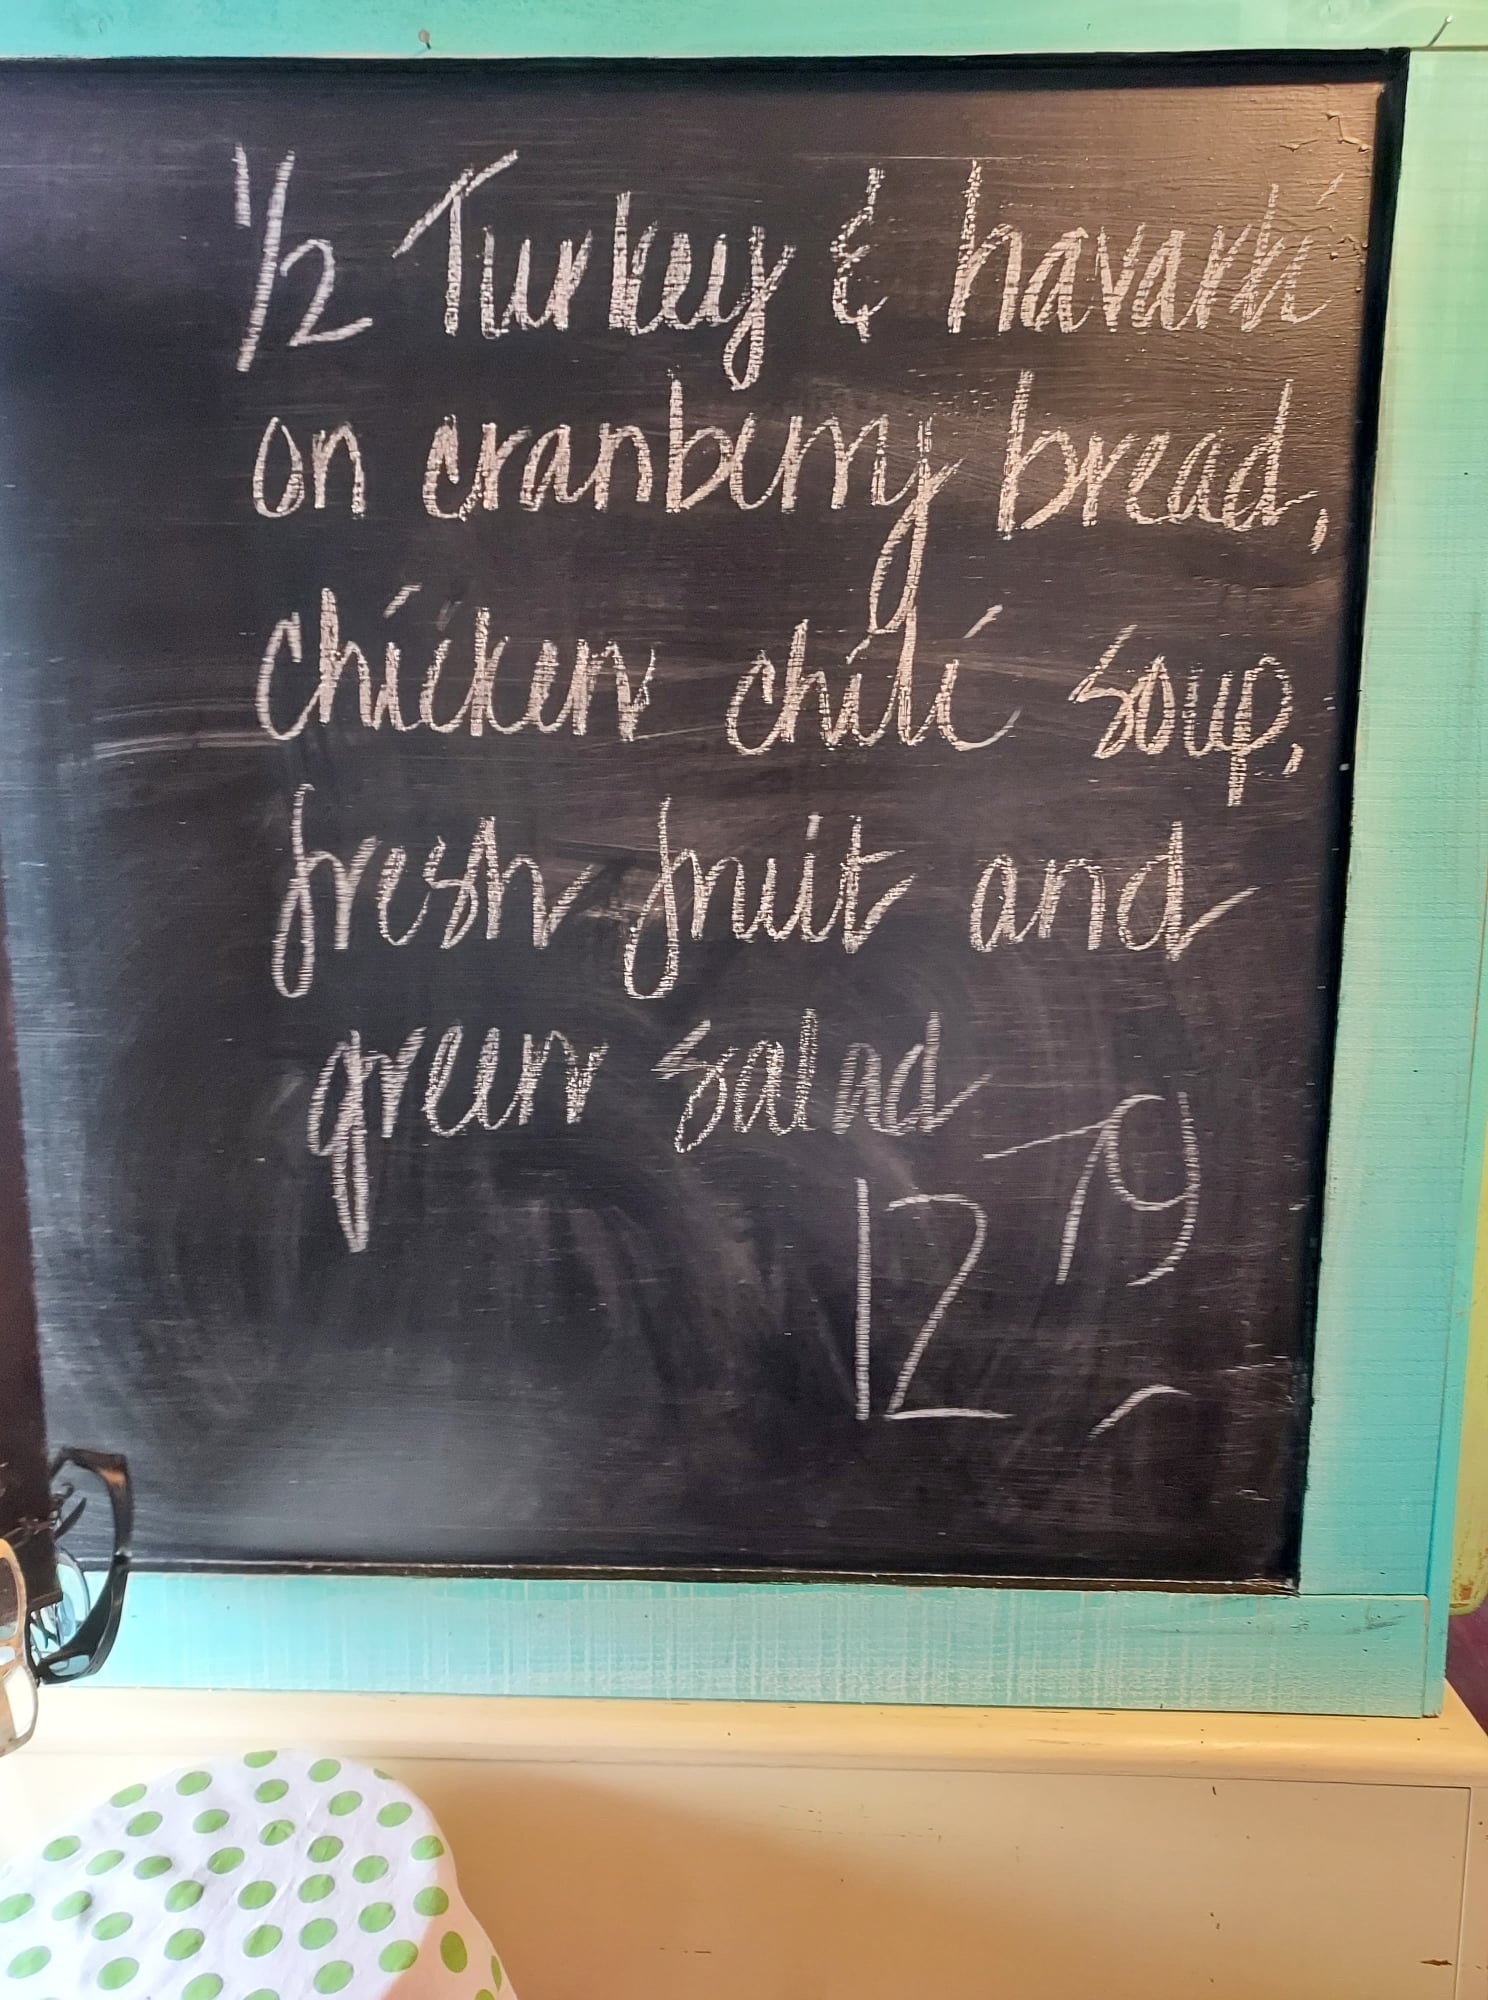 1/2 Turkey & havarti
on cranberry bread,
chicken chili soup,
fresh fruit and
green salad
12 79